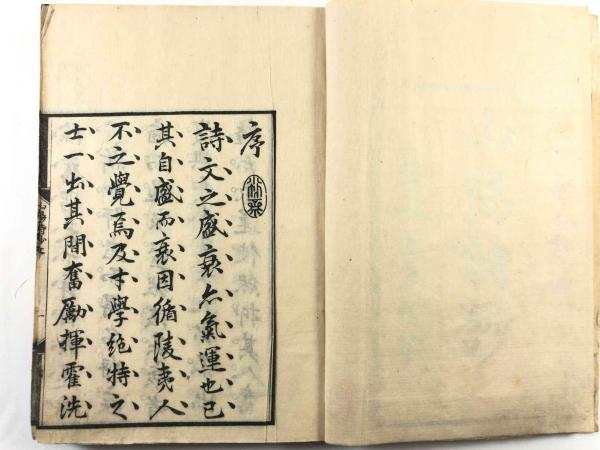 序
詩文之盛衰亦氣運也已
其自盛而衰因循陵夷人
不之覺焉及才學絶特之
士一出其間奮勵揮霍洗